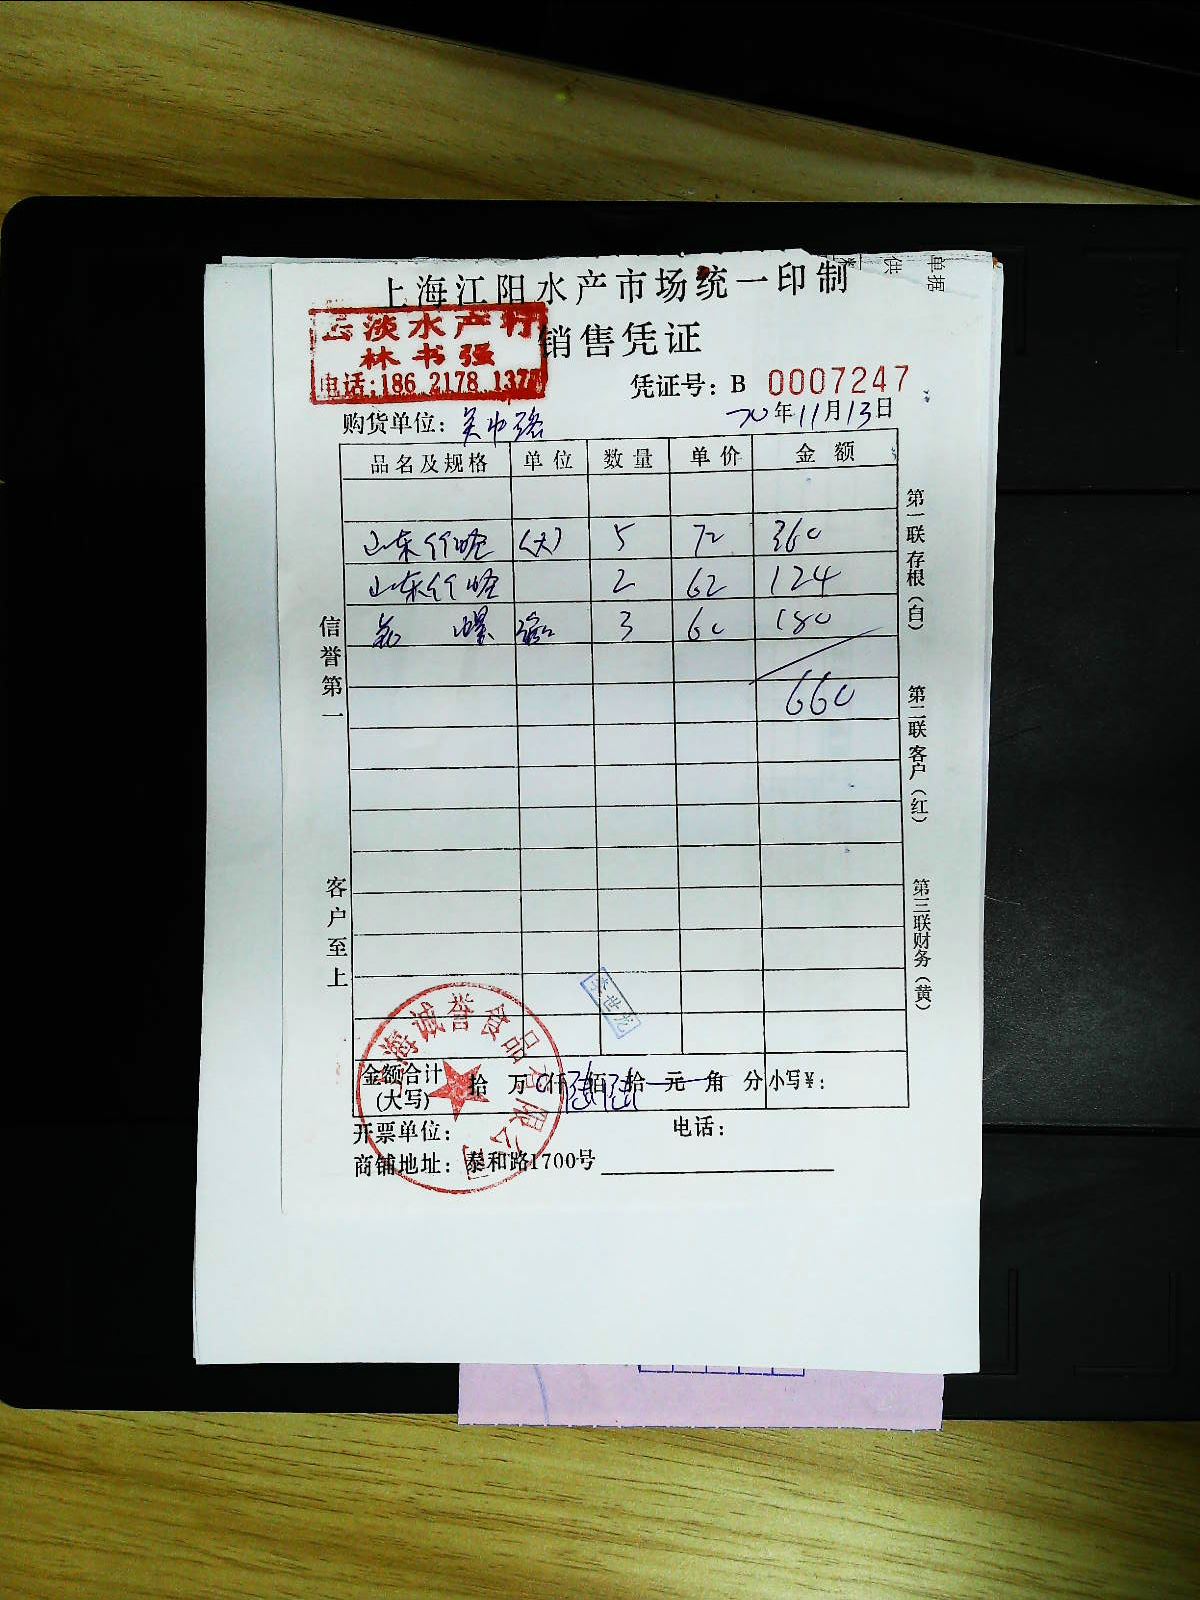 单据
供
上海江阳水产市场统一印制
云淡水产行
林书强
电话:186 2178 1377
销售凭证
凭证号: B 0007247
购货单位: 吴中路
20年11月13日
品名及规格 单位 数量 单价 金额
山东竹蛏 (大) 5 72 360
山东竹蛏 2 62 124
螺 3 60 180
660
信誉第一
客户至上
第一联存根(白)
第二联客户(红)
第三联财务(黄)
李世龙
上海诚誉食品有限公司
金额合计(大写) 拾 万 仟 陆佰 陆拾 元 角 分 小写¥:
开票单位: 电话:
商铺地址: 泰和路1700号